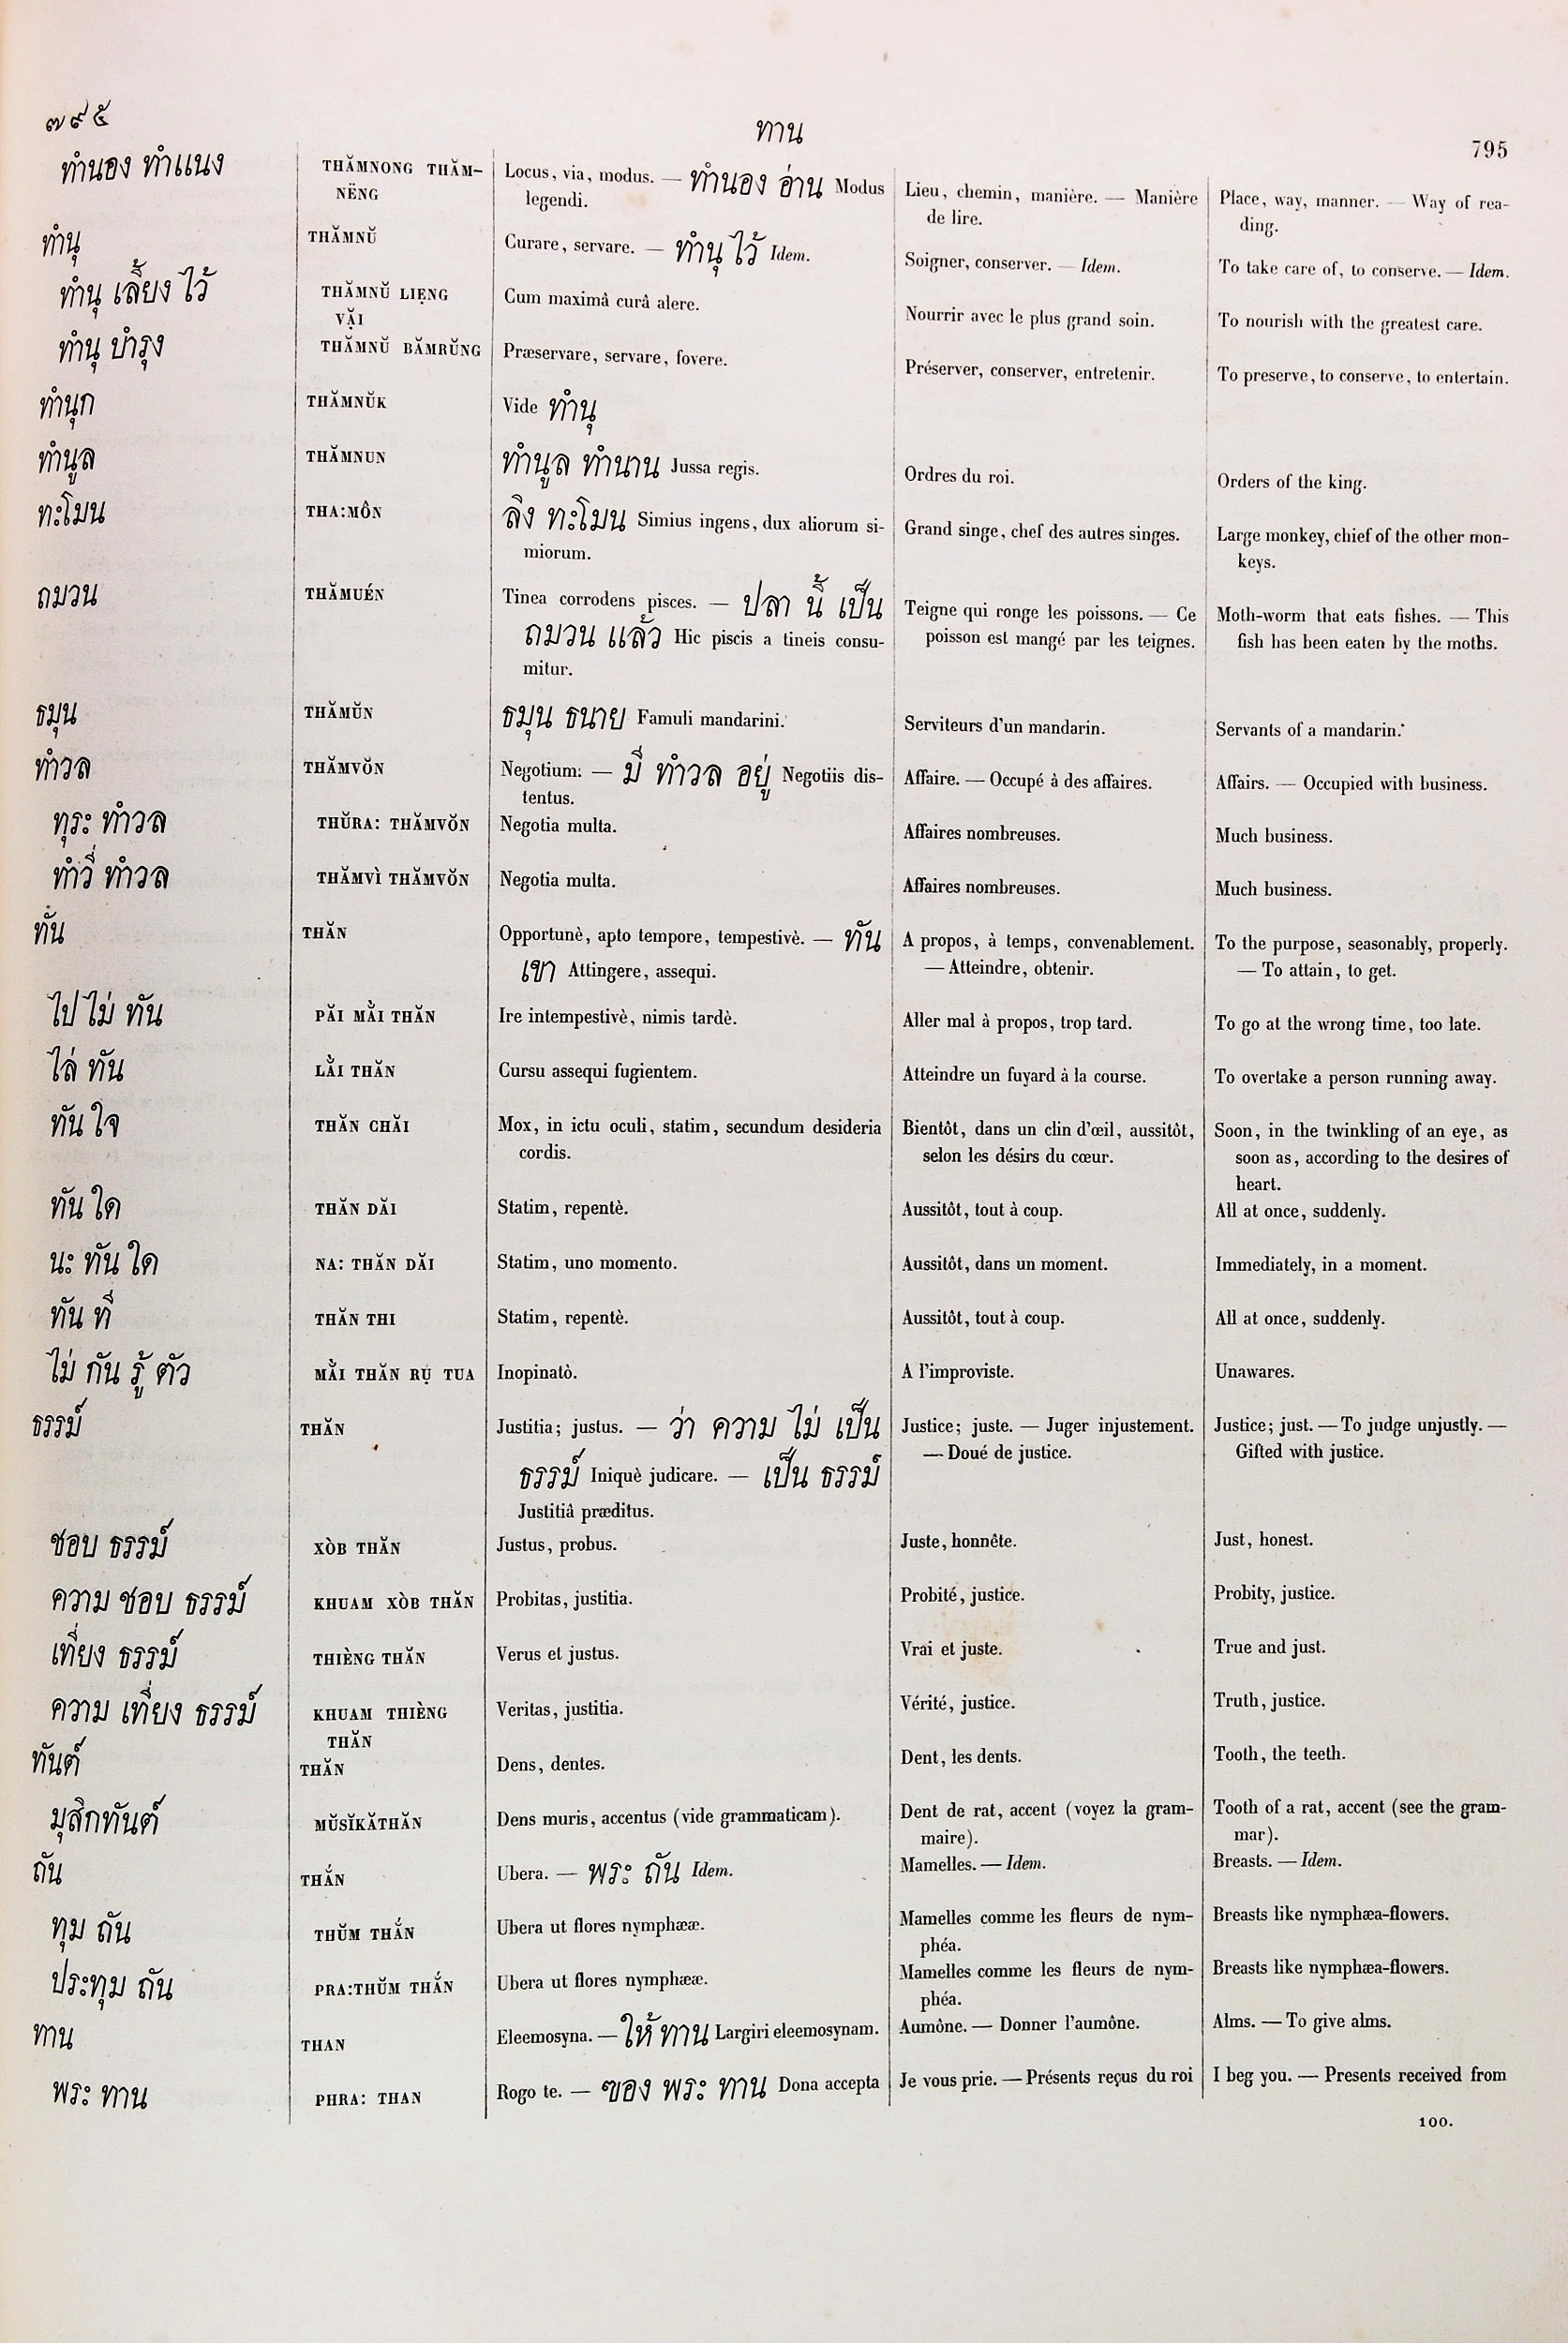 ๗๙๕
ทาน
795
ทำนอง ทำแนง THĂMNONG THĂM- Locus, via, modus. — ทำนอง อ่าน Modus Lieu, chemin, manière. — Manière Place, way, manner. — Way of rea-
NËNG legendi. de lire. ding.
ทำนุ THĂMNŬ Curare, servare. — ทำนุ ไว้ Idem. Soigner, conserver. — Idem. To take care of, to conserve. — Idem.
ทำนุ เลี้ยง ไว้ THĂMNŬ LIẸNG Cum maximâ curâ alere. Nourrir avec le plus grand soin. To nourish with the greatest care.
VẶI
ทำนุ บำรุง THĂMNŬ BĂMRŬNG Præservare, servare, fovere. Préserver, conserver, entretenir. To preserve, to conserve, to entertain.
ทำนุก THĂMNŬK Vide ทำนุ
ทำนูล THĂMNUN ทำนูล ทำนาน Jussa regis. Ordres du roi. Orders of the king.
ทะโมน THA:MÔN ลิง ทะโมน Simius ingens, dux aliorum si- Grand singe, chef des autres singes. Large monkey, chief of the other mon-
miorum. keys.
ถมวน THĂMUÉN Tinea corrodens pisces. — ปลา นี้ เป็น Teigne qui ronge les poissons. — Ce Moth-worm that eats fishes. — This
ถมวน แล้ว Hic piscis a tineis consu- poisson est mangé par les teignes. fish has been eaten by the moths.
mitur.
ธมุน THĂMŬN ธมุน ธนาย Famuli mandarini. Serviteurs d'un mandarin. Servants of a mandarin.
ทำวล THĂMVŎN Negotium: — มี ทำวล อยู่ Negotiis dis- Affaire. — Occupé à des affaires. Affairs. — Occupied with business.
tentus.
ทุระ ทำวล THŬRA: THĂMVŎN Negotia multa. Affaires nombreuses. Much business.
ทำวี่ ทำวล THĂMVÌ THĂMVŎN Negotia multa. Affaires nombreuses. Much business.
ทัน THĂN Opportunè, apto tempore, tempestivè. — ทัน A propos, à temps, convenablement. To the purpose, seasonably, properly.
เขา Attingere, assequi. — Atteindre, obtenir. — To attain, to get.
ไป ไม่ ทัน PĂI MẰI THĂN Ire intempestivè, nimis tardè. Aller mal à propos, trop tard. To go at the wrong time, too late.
ไล่ ทัน LẰI THĂN Cursu assequi fugientem. Atteindre un fuyard à la course. To overtake a person running away.
ทัน ใจ THĂN CHĂI Mox, in ictu oculi, statim, secundum desideria Bientôt, dans un clin d'œil, aussitôt, Soon, in the twinkling of an eye, as
cordis. selon les désirs du cœur. soon as, according to the desires of
heart.
ทัน ใด THĂN DĂI Statim, repentè. Aussitôt, tout à coup. All at once, suddenly.
นะ ทัน ใด NA: THĂN DĂI Statim, uno momento. Aussitôt, dans un moment. Immediately, in a moment.
ทัน ที THĂN THI Statim, repentè. Aussitôt, tout à coup. All at once, suddenly.
ไม่ กัน รู้ ตัว MẰI THĂN RỤ TUA Inopinatò. A l'improviste. Unawares.
ธรรม์ THĂN Justitia; justus. — ว่า ความ ไม่ เป็น Justice; juste. — Juger injustement. Justice; just. — To judge unjustly. —
ธรรม์ Iniquè judicare. — เป็น ธรรม์ — Doué de justice. Gifted with justice.
Justitiâ præditus.
ชอบ ธรรม์ XÒB THĂN Justus, probus. Juste, honnête. Just, honest.
ความ ชอบ ธรรม์ KHUAM XÒB THĂN Probitas, justitia. Probité, justice. Probity, justice.
เที่ยง ธรรม์ THIÈNG THĂN Verus et justus. Vrai et juste. True and just.
ความ เที่ยง ธรรม์ KHUAM THIÈNG Veritas, justitia. Vérité, justice. Truth, justice.
THĂN
ทันต์ THĂN Dens, dentes. Dent, les dents. Tooth, the teeth.
มุสิกทันต์ MŬSĬKĂTHĂN Dens muris, accentus (vide grammaticam). Dent de rat, accent (voyez la gram- Tooth of a rat, accent (see the gram-
maire). mar).
ถัน THẮN Ubera. — พระ ถัน Idem. Mamelles. — Idem. Breasts. — Idem.
ทุม ถัน THŬM THẮN Ubera ut flores nymphææ. Mamelles comme les fleurs de nym- Breasts like nymphæa-flowers.
phéa.
ประทุม ถัน PRA:THŬM THẮN Ubera ut flores nymphææ. Mamelles comme les fleurs de nym- Breasts like nymphæa-flowers.
phéa.
ทาน THAN Eleemosyna. — ให้ ทาน Largiri eleemosynam. Aumône. — Donner l'aumône. Alms. — To give alms.
พระ ทาน PHRA: THAN Rogo te. — ของ พระ ทาน Dona accepta Je vous prie. — Présents reçus du roi I beg you. — Presents received from
100.